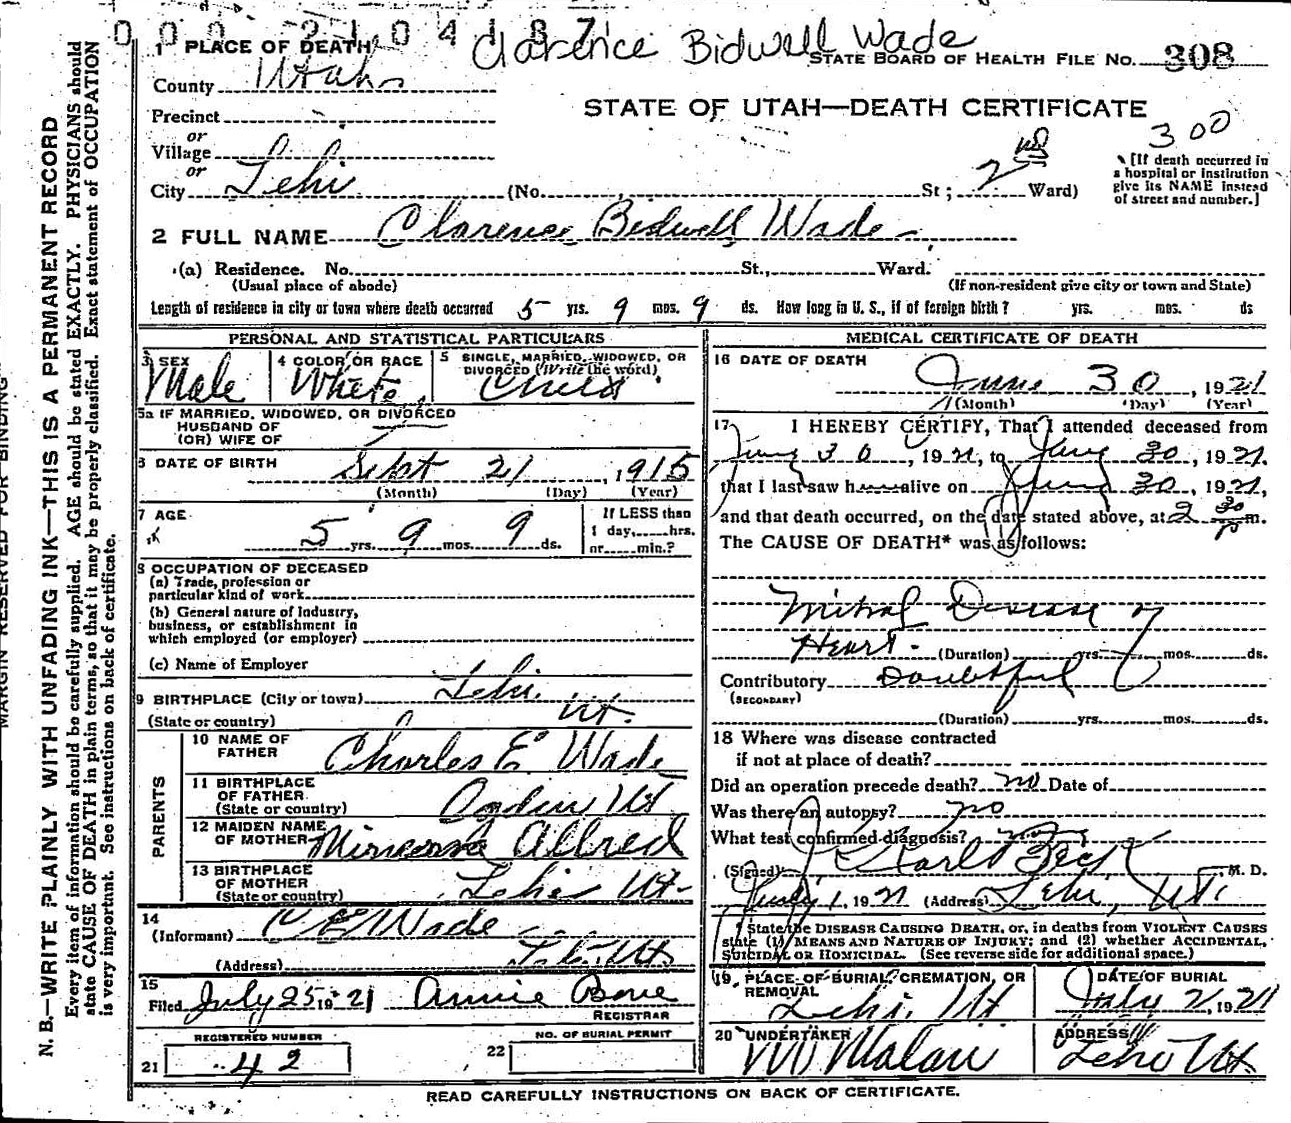 0 0 0 2 1 0 4 1 8 7
Clarence Bidwell Wade
1 PLACE OF DEATH
STATE BOARD OF HEALTH FILE No. 308
County Utah
STATE OF UTAH—DEATH CERTIFICATE
Precinct
300
or
Village
or
[If death occurred in a hospital or institution give its NAME instead of street and number.]
City Lehi (No. St; 2nd Ward)
2 FULL NAME Clarence Bidwell Wade
(a) Residence. No. St., Ward.
(Usual place of abode) (If non-resident give city or town and State)
Length of residence in city or town where death occurred 5 yrs. 9 mos. 9 ds. How long in U. S., if of foreign birth? yrs. mos. ds
PERSONAL AND STATISTICAL PARTICULARS
3 SEX Male
4 COLOR OR RACE White
5 SINGLE, MARRIED, WIDOWED, OR DIVORCED (Write the word) Child
5a IF MARRIED, WIDOWED, OR DIVORCED
HUSBAND OF
(OR) WIFE OF
6 DATE OF BIRTH Sept 21, 1915
(Month) (Day) (Year)
7 AGE
5 yrs. 9 mos. 9 ds.
If LESS than
1 day, hrs.
or min.?
8 OCCUPATION OF DECEASED
(a) Trade, profession or
particular kind of work
(b) General nature of industry,
business, or establishment in
which employed (or employer)
(c) Name of Employer
9 BIRTHPLACE (City or town) Lehi
(State or country) Ut.
PARENTS
10 NAME OF FATHER Charles E Wade
11 BIRTHPLACE OF FATHER (State or country) Ogden Ut
12 MAIDEN NAME OF MOTHER Minerva Allred
13 BIRTHPLACE OF MOTHER (State or country) Lehi Ut
14
(Informant) C E Wade
(Address) Lehi Ut
15
Filed July 25 1921 Annie Bone
REGISTRAR
REGISTERED NUMBER
21 42
NO. OF BURIAL PERMIT
22
MEDICAL CERTIFICATE OF DEATH
16 DATE OF DEATH
June 30, 1921
(Month) (Day) (Year)
17 I HEREBY CERTIFY, That I attended deceased from
June 30, 1921, to June 30, 1921.
that I last saw h alive on June 30, 1921,
and that death occurred, on the date stated above, at 2 30 P m.
The CAUSE OF DEATH* was as follows:
Mitral Disease of
Heart.
(Duration) yrs. mos. ds.
Contributory Doubtful
(SECONDARY)
(Duration) yrs. mos. ds.
18 Where was disease contracted
if not at place of death?
Did an operation precede death? no Date of
Was there an autopsy? no
What test confirmed diagnosis?
(Signed) Karl Beck M. D.
July 1, 1921 (Address) Lehi, Ut.
* State the DISEASE CAUSING DEATH, or, in deaths from VIOLENT CAUSES
state (1) MEANS AND NATURE OF INJURY; and (2) whether ACCIDENTAL,
SUICIDAL OR HOMICIDAL. (See reverse side for additional space.)
19 PLACE OF BURIAL, CREMATION, OR REMOVAL
Lehi, Ut
DATE OF BURIAL
July 2, 1921
20 UNDERTAKER
Malan
ADDRESS
Lehi Ut
READ CAREFULLY INSTRUCTIONS ON BACK OF CERTIFICATE.
MARGIN RESERVED FOR BINDING
N. B.—WRITE PLAINLY WITH UNFADING INK—THIS IS A PERMANENT RECORD
Every item of information should be carefully supplied. AGE should be stated EXACTLY. PHYSICIANS should
state CAUSE OF DEATH in plain terms, so that it may be properly classified. Exact statement of OCCUPATION
is very important. See instructions on back of certificate.